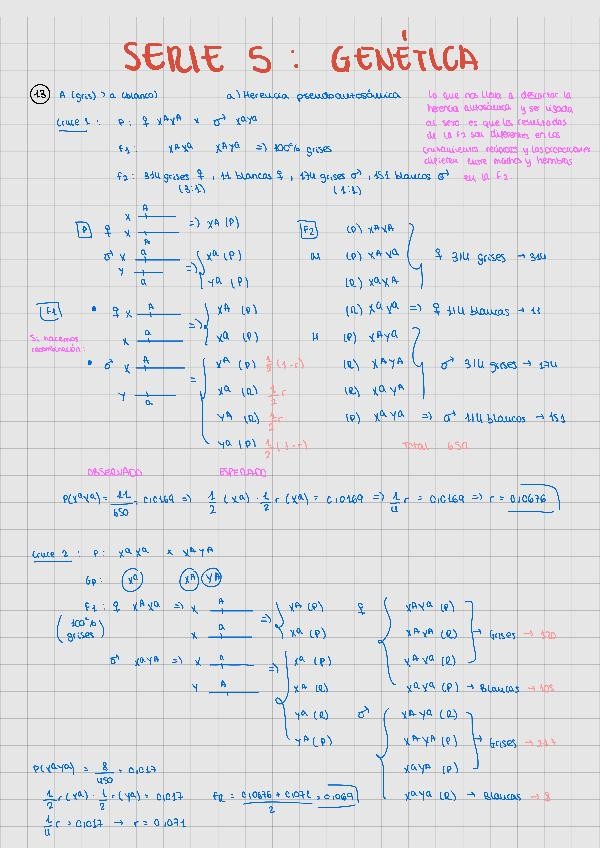 SERIE 5: GENÉTICA
13 A (gris) > a (blanco) a) Herencia pseudoautosómica
lo que nos lleva a descartar la
herencia autosómica y ser ligada
al sexo es que los resultados
de la F2 son diferentes en los
cruzamientos recíprocos y las proporciones
difieren entre machos y hembras
en la F2.
Cruce 1: P: ♀ XᴬXᴬ x ♂ XᵃYᵃ
F1: XᴬXᵃ XᴬYᵃ => 100% grises
F2: 314 grises ♀, 11 blancas ♀, 174 grises ♂, 151 blancos ♂
(3:1) (1:1)
P ♀ X A
X A
=> XA (P)
♂ X a
Y a
=> Xᵃ (P)
Yᵃ (P)
F1 • ♀ X A
X a
=> XA (P)
Xᵃ (P)
Si hacemos
recombinación:
• ♂ X A
Y a
= Xᴬ (P) 1/2 (1-r)
Xᵃ (R) 1/2 r
YA (R) 1/2 r
Yᵃ (P) 1/2 (1-r)
F2
(P) XᴬXᴬ
(P) XᴬXᵃ ♀ 3/4 grises → 314
(R) XᵃXᴬ
(R) XᵃXᵃ => ♀ 1/4 blancas → 11
(P) XᴬYᵃ
(R) XᴬYᴬ ♂ 3/4 grises → 174
(R) XᵃYᴬ
(P) XᵃYᵃ => ♂ 1/4 blancos → 151
Total: 650
OBSERVADO ESPERADO
P(XᵃXᵃ) = 11/650 = 0,0169 => 1/2 (Xᵃ) · 1/2 r (Xᵃ) = 0,0169 => 1/4 r = 0,0169 => r = 0,0676
Cruce 2: P: XᵃXᵃ x XᴬYᴬ
Gp: Xᵃ Xᴬ YA
F1: ♀ XᴬXᵃ => X A
X a
=> XA (P)
Xᵃ (P)
(100%
grises)
♂ XᵃYA => X a
Y A
=> Xᵃ (P)
Xᴬ (R)
Yᵃ (R)
YA (P)
♀ XᴬXᵃ (P)
XᴬXᴬ (R) → Grises → 120
XᴬXᵃ (R)
XᵃXᵃ (P) → Blancas → 105
♂ XᴬYᵃ (R)
XᴬYᴬ (P) → Grises → 217
XᵃYᴬ (P)
XᵃYᵃ (R) → Blancas → 8
P(XᵃYᵃ) = 8/450 = 0,017
1/2 r (Xᵃ) · 1/2 r (Yᵃ) = 0,017
FR = 0,0676 + 0,071 / 2 = 0,069
1/4 r = 0,017 → r = 0,071